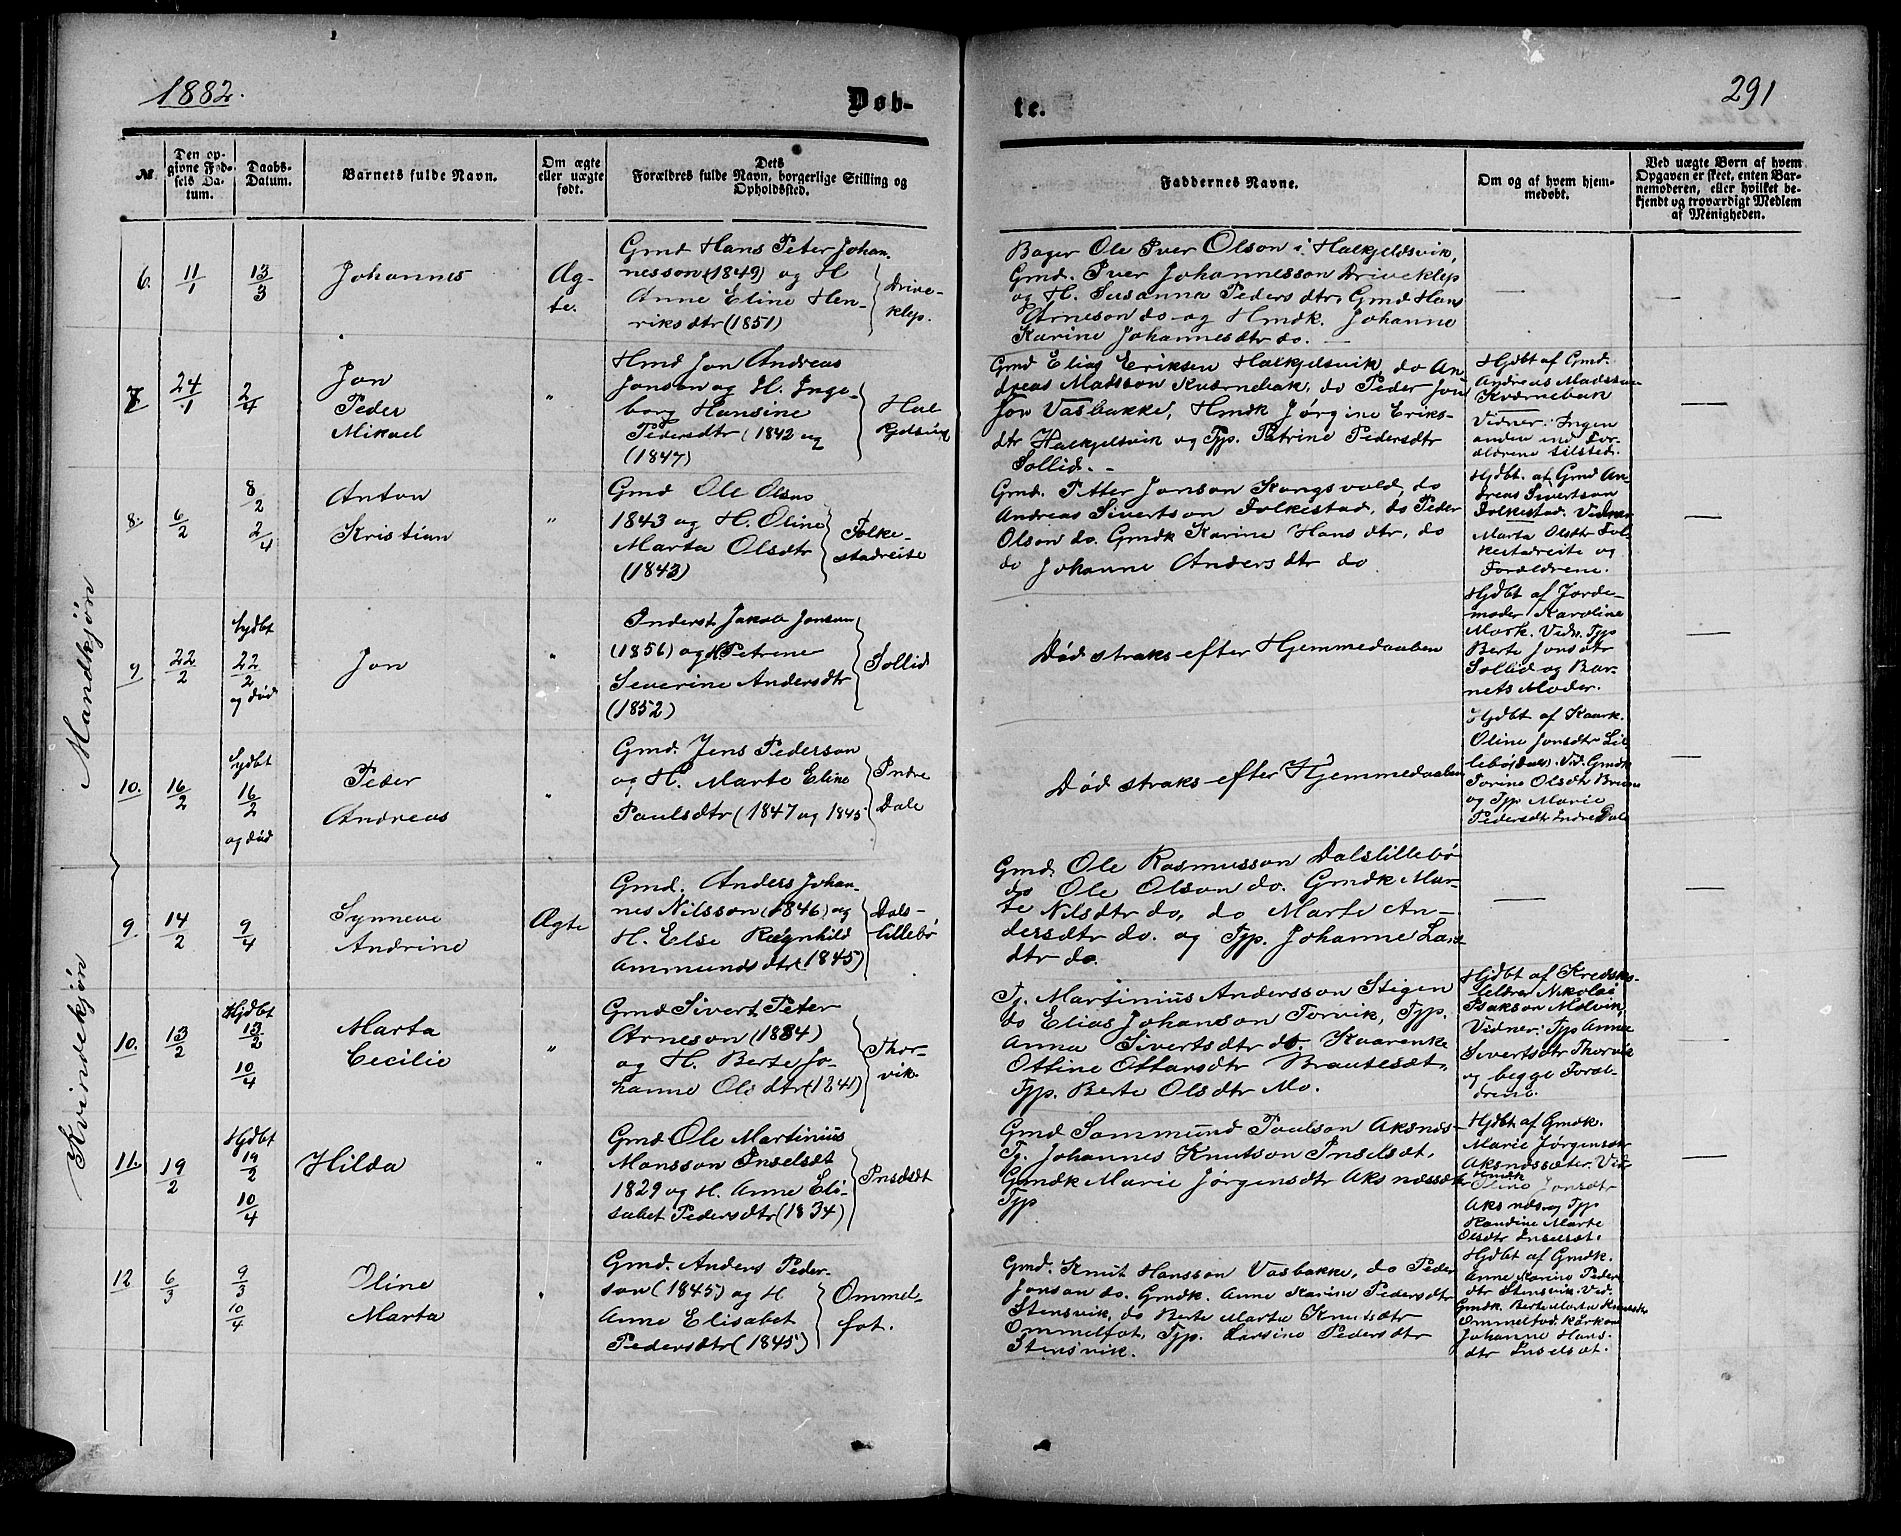 1882.
Døb-
te.
291
№
Den op-
givne Fød-
sels Da-
tum.
Daabs-
Datum.
Barnets fulde Navn.
Om ægte
eller uægte
født.
Dets
Forældres fulde Navn, borgerlige Stilling og
Opholdssted.
Faddernes Navne.
Om og af hvem hjem-
medøbt.
Ved uægte Børn af hvem
Opgaven er skeet, enten Bar-
nemoderen, eller hvilket be-
kjendt og troværdigt Medlem
af Menigheden.
Mandkjøn
6.
11/1
13/3
Johannes
Æg-
te.
Gmd Hans Peter Johan-
nesson (1849) og H
Anne Eline Hen-
riksdtr (1851)
Drive-
klep.
Bager Ole Iver Olson i Halkjeldsvik,
Gmd. Iver Johannesson Driveklep
og H. Susanna Pedersdtr, Gmd Hans
Arneson do. og Hmdk. Johanne
Karine Johannesdtr do. —
—
7
24/1
2/4
Jon
Peder
Mikael
"
Hmd Jon Andreas
Jonson og H. Inge-
borg Hansine
Pedersdtr (1842 og
(1847)
Hal
kjelsvig
Gmd Elias Eriksen Halkjelsvik, do An
dreas Madsson Kværnebak, do Peder Jon
Jon Vasbakke, Hmdk Jørgine Eriks-
dtr Halkjelsvik og Tjp. Petrine Pedersdtr
Sollid. -
Hjdbt af Gmd.
Andreas Madsson
Kværnebak
Vidner: Ingen
anden end For-
ældrene tilsted.
—
8.
6/2
8/2
2/4
Anton
Kristian
"
Gmd Ole Olson
1843 og H. Oline
Marta Olsdtr
(1843)
Folke-
stadreite
Gmd. Petter Jonson Kongsvold, do
Andreas Sivertson Folkestad, do Peder
Olson do. Gmdk Karine Hansdtr, do
do Johanne Andersdtr do
Hjdbt. af Gmd An-
dreas Sivertson
Folkestad. Vidner
Marta Olsdtr Fol-
kestadreite og
Forældrene.
—
9
22/2
22/2
og død
Jon
"
Inderst Jakob Jonson
(1856) og H Petrine
Severine Andersdtr
(1852)
Sollid
Død straks efter Hjemmedaaben
Hjdbt af Jorde-
moder Karoline
Mork. Vidn. Tjp
Berte Jonsdtr
Sollid og Bar-
nets Moder.
—
10.
16/2
16/2
og død
Peder
Andreas
"
Gmd. Jens Pederson
og H. Marte Eline
Paulsdtr (1847 og 1845
Indre
Dale
Død straks efter Hjemmedaaben
Hjdbt af Kaark.
Oline Jonsdtr Lil-
lebø. Vid. Gmdk
Olsdtr
og Tjp Marie
Pedersdtr Indre Dale
—
Kvindekjøn
9.
14/2
9/4
Synneve
Andrine
Ægte
Gmd. Anders Johan-
nes Nilsson (1846) og
H. Else Regnhild
Ammundsdtr (1845)
Dals-
lillebø
Gmd Ole Rasmusson Dalslillebø
do Ole Olson do. Gmdk Mar-
te Nilsdtr do, do Marte An-
dersdtr do. og Tjp. Johanne Lars
dtr do.
—
—
10.
13/2
Hjdbt
13/2
10/4
Marta
Cecilie
"
Gmd Sivert Peter
Arneson (1884)
og H. Berte Jo-
hanne Olsdtr (1841)
Thor-
vik.
Tj. Martinius Andersson Stigen
do Elias Johanson Torvik, Tjp.
Anna Sivertsdtr do. Kaarenke
Ottine Ottarsdtr Brautesæt,
Tjp. Berte Olsdtr Mo.
Hjdbt af Kreds-
Nikolai
Isakson Molvik,
Vidner: Tjp Anne
Sivertsdtr Thorvik
og begge Foræl-
drene.
—
11.
19/2
Hjdbt
19/2
10/4
Hilda
"
Gmd Ole Martinius
Monsson Inselsæt
1829 og H. Anne Eli-
sabet Pedersdtr (1834)
Inselsæt
Gmd Sammund Paulson Aksnæs-
Tj. Johannes Knutson Inselsæt,
Gmdk Marie Jørgensdtr Aksnessæter
Tjp
Hjdbt af Gmdk.
Marie Jørgensdtr
Aksnæssæter. Vid:
Hmdk
Oline Jonsdtr
Aksnæs og Tjp
Randine Marte
Olsdtr Inselsæt.
—
12
6/3
9/3
10/4
Oline
Marta
"
Gmd. Anders Peder-
son (1845) og H
Anne Elisabet
Pedersdtr (1845)
Ommel-
fot.
Gmd. Knut Hansson Vasbakke, do Peder
Jonson do. Gmdk. Anne Karine Pedersdtr
Stensvik, do Berte Marta Knudsdtr
Ommelfot, Tjp. Larsine Pedersdtr
Stensvik.
Hjdbt af Gmdk.
Anne Karine Peders
dtr Stensvik. Vid.
Gmdk. Berte Marta Knudsdtr
Ommelfot,
Johanne Hans-
dtr Inselsæt.